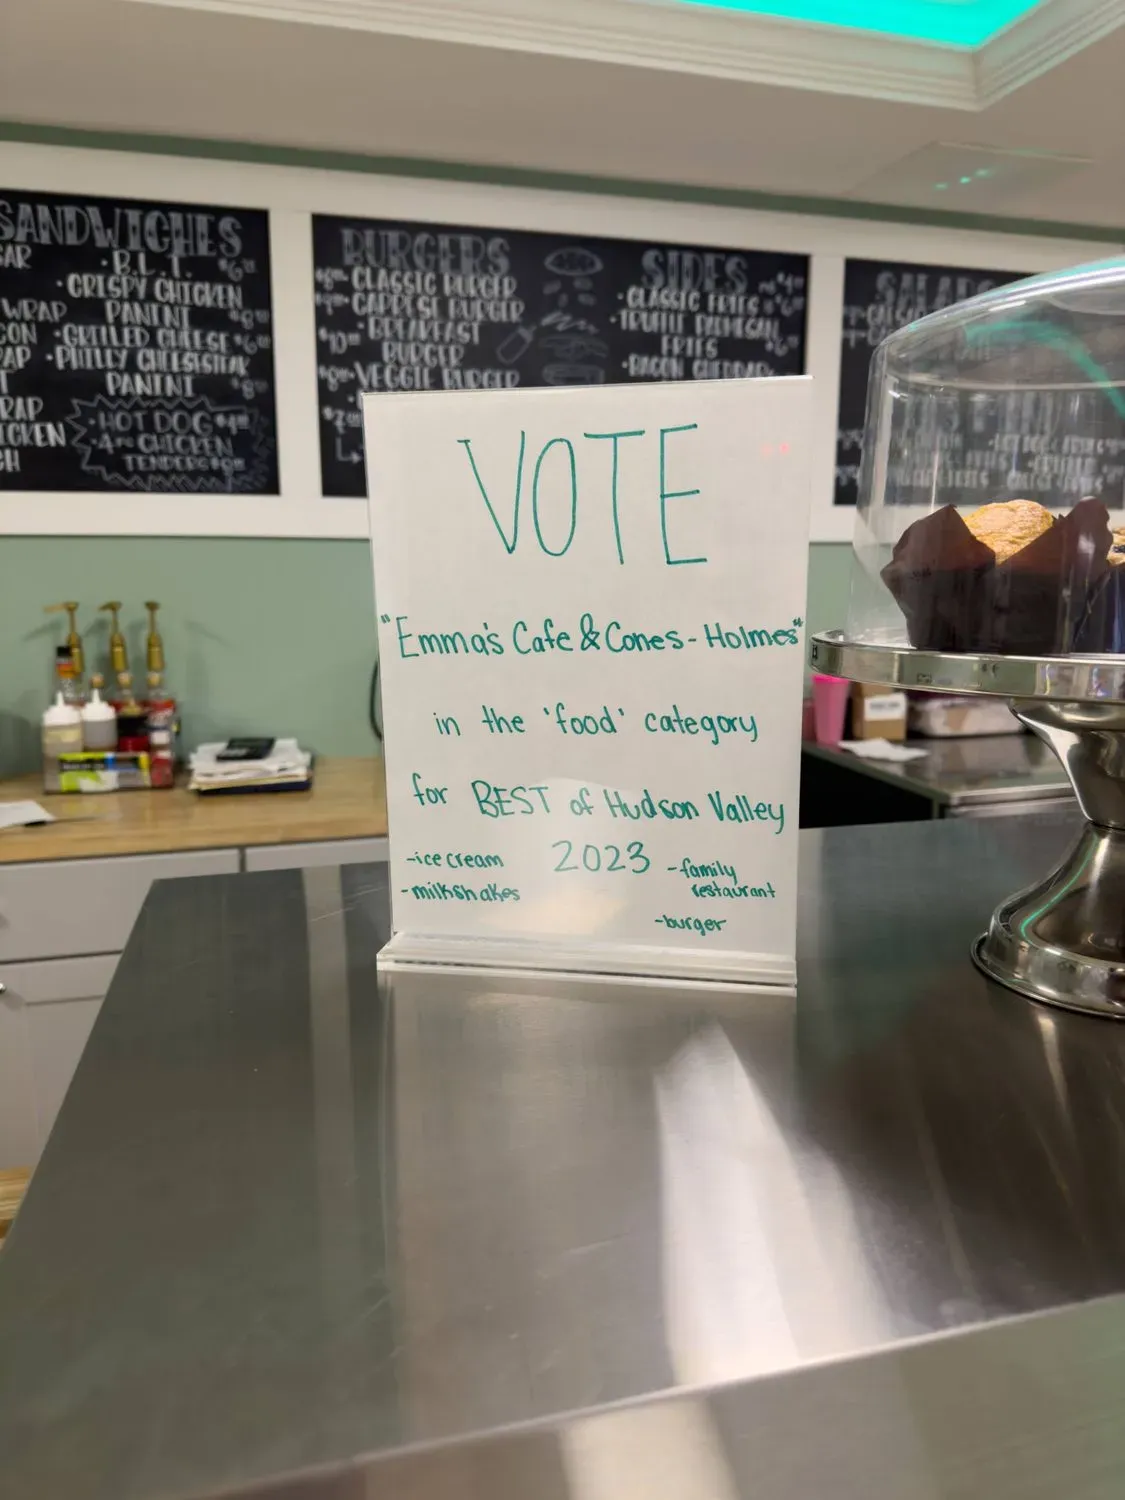 SANDWICHES
·B.L.T.
·CRISPY CHICKEN
PANINI
·GRILLED CHEESE
·PHILLY CHEESESTEAK
PANINI
WRAP
·HOT DOG
CHICKEN
TENDERS
BURGERS
CLASSIC BURGER
BREAKFAST
BURGER
VEGGIE BURGER
SIDES
·CLASSIC FRIES
·TRUFFLE PARMESAN
FRIES
·BACON CHEDDAR
SALADS
VOTE
"Emma's Cafe & Cones - Holmes"
in the 'food' category
for BEST of Hudson Valley
2023
-ice cream
-milkshakes
-family
restaurant
-burger